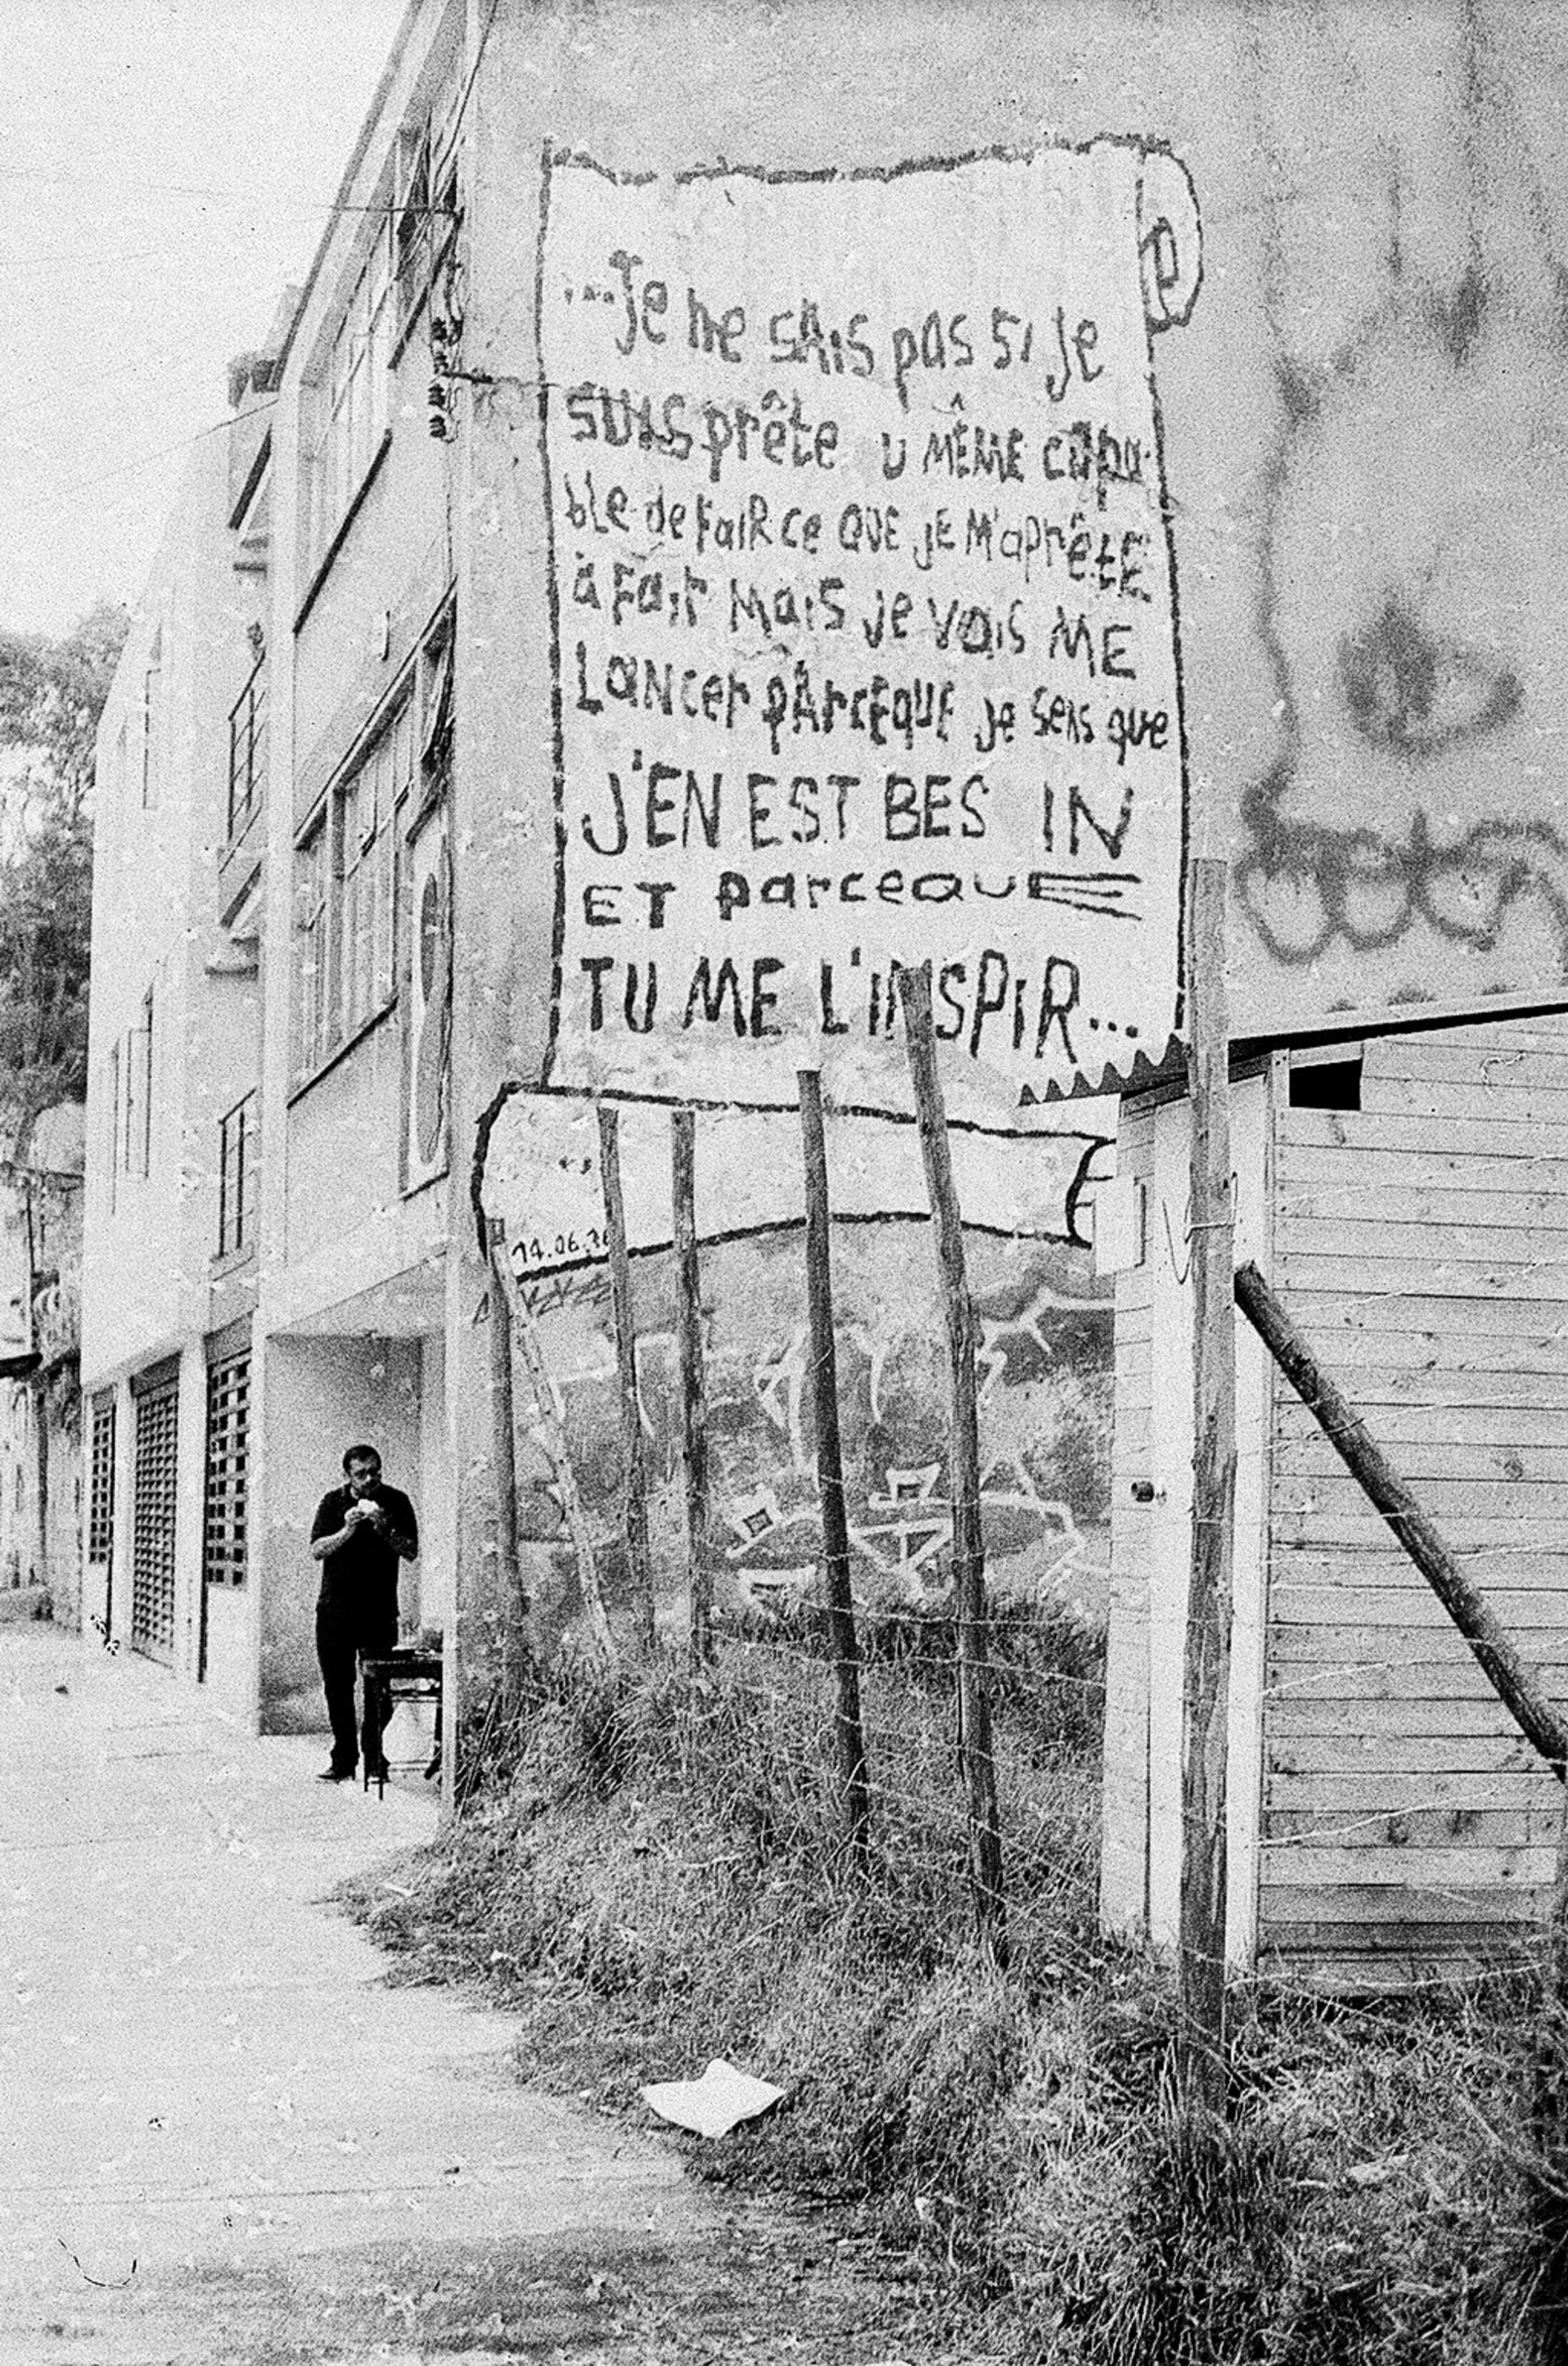 ...Je ne sais pas si je
suis prête u MÊME capa-
ble de faiR ce QUE JE M'aprêtE
à fair Mais je vais ME
LaNcer pArcEquE je sens que
J'EN EST BES IN
ET parceque
TU ME L'INSPIR...
14.06.